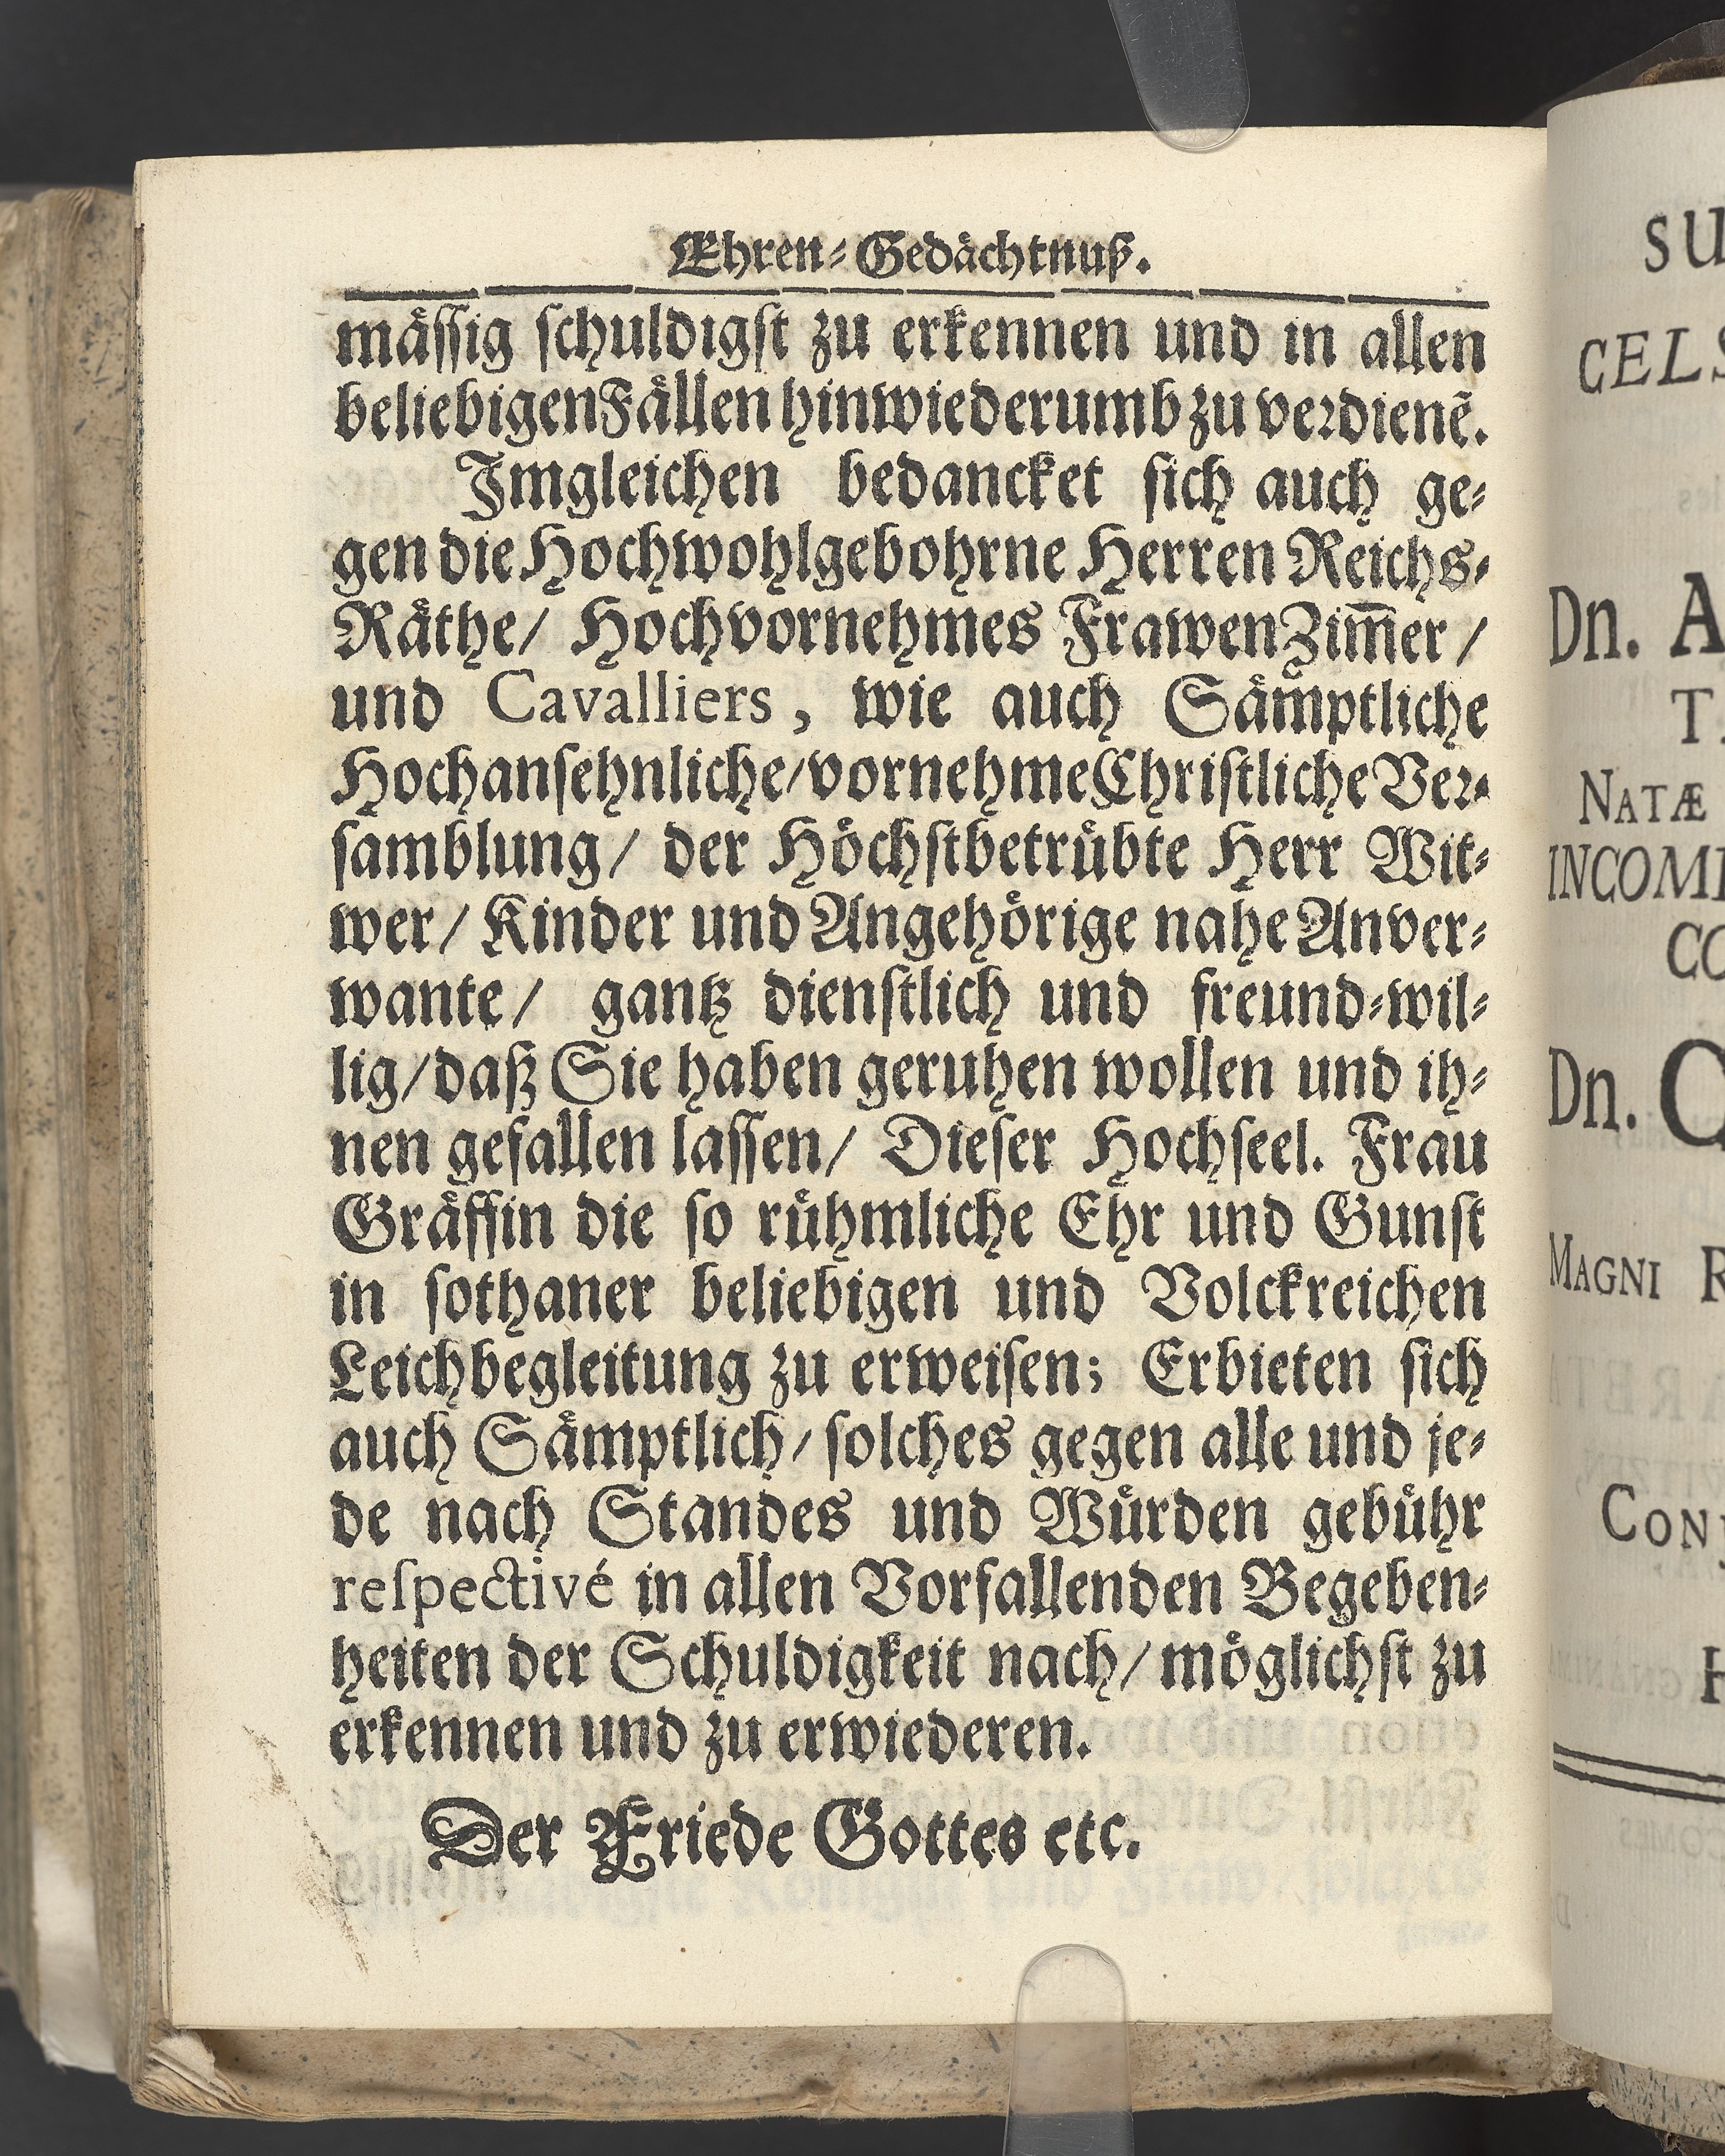 Ehren-Gedächtnuß.
mässig schuldigst zu erkennen und in allen
beliebigen Fällen hinwiederumb zu verdienẽ.
Imgleichen bedancket sich auch ge-
gen die Hochwohlgebohrne Herren Reichs-
Räthe/ Hochvornehmes FrawenZim̃er/
und Cavalliers, wie auch Sämptliche
Hochansehnliche/vornehme Christliche Ver-
samblung/ der Höchstbetrübte Herr Wit-
wer/ Kinder und Angehörige nahe Anver-
wante/ gantz dienstlich und freund-wil-
lig/daß Sie haben geruhen wollen und ih-
nen gefallen lassen/ Dieser Hochseel. Frau
Gräffin die so rühmliche Ehr und Gunst
in sothaner beliebigen und Volckreichen
Leichbegleitung zu erweisen; Erbieten sich
auch Sämptlich/ solches gegen alle und je-
de nach Standes und Würden gebühr
respectivé in allen Vorfallenden Begeben-
heiten der Schuldigkeit nach/ möglichst zu
erkennen und zu erwiederen.
Der Friede Gottes etc.
SU
CELS
Dn. A
T
NATÆ
INCOM
CO
Dn. C
MAGNI R
CON
H